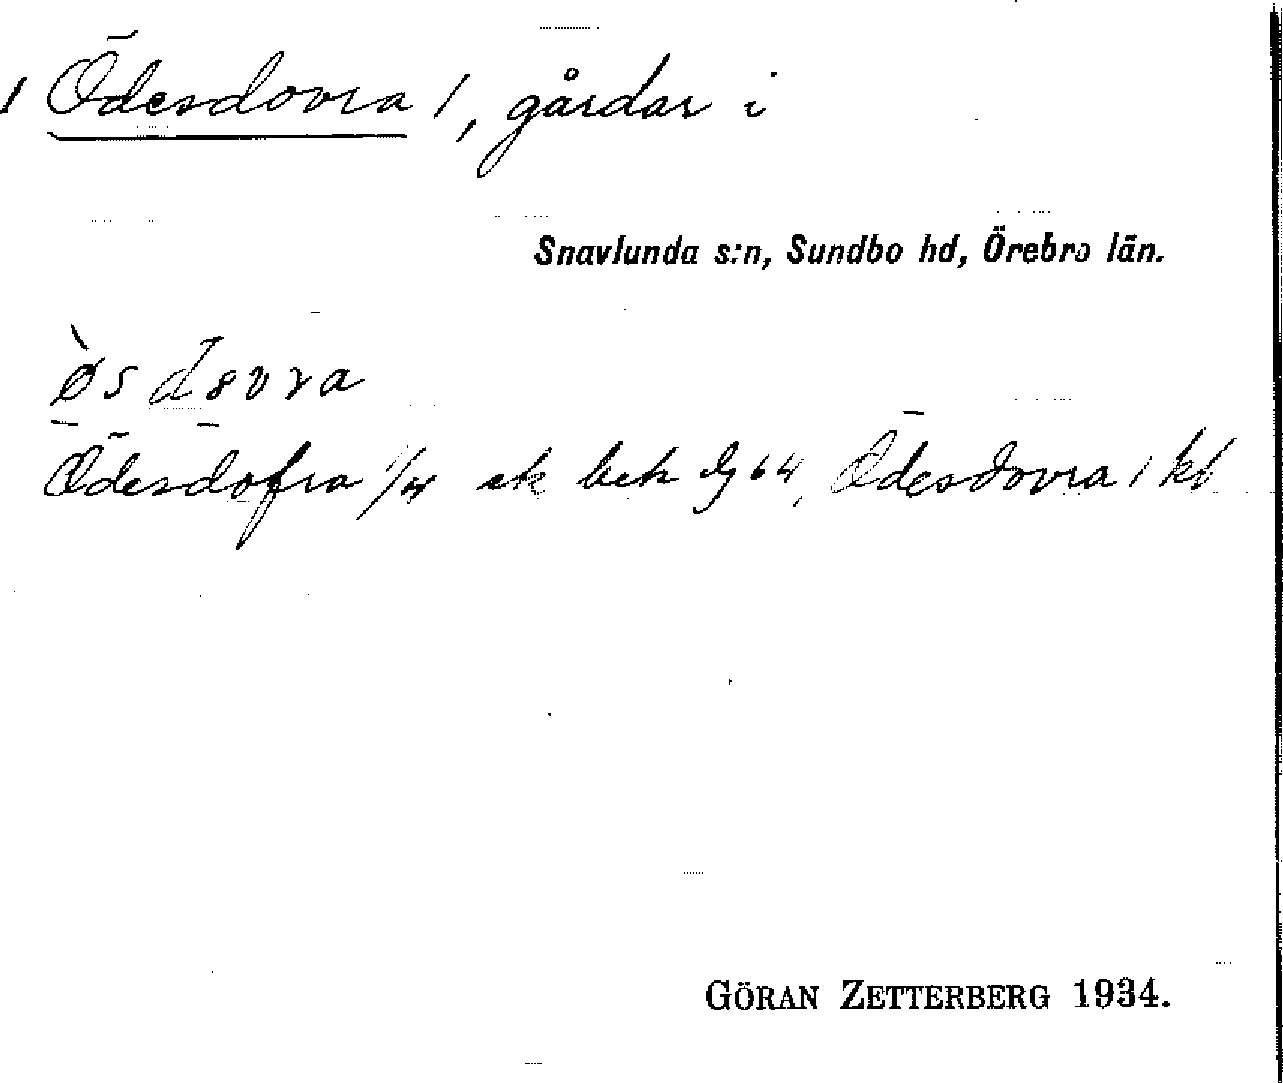 /Ödesdovra/, gårdar i
Snavlunda s:n, Sundbo hd, Örebro län.
Ödesdofra 1/4 ek 64, Ödesdovra / kb
GÖRAN ZETTERBERG 1934.